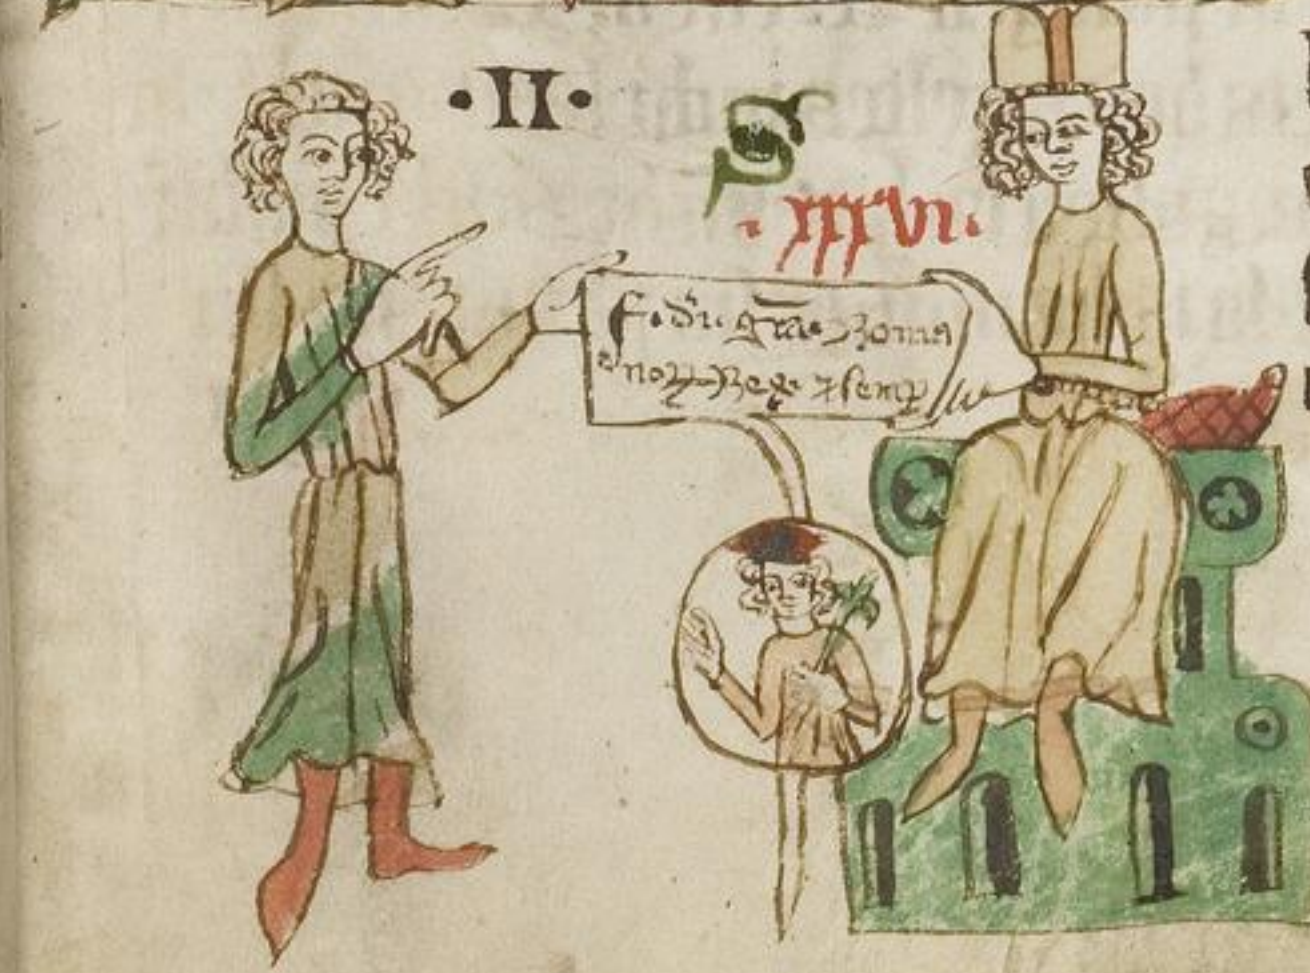 ·II·
S
·xxxvi·
f· di· gra· Roma
noꝝ Rex· ⁊ semp